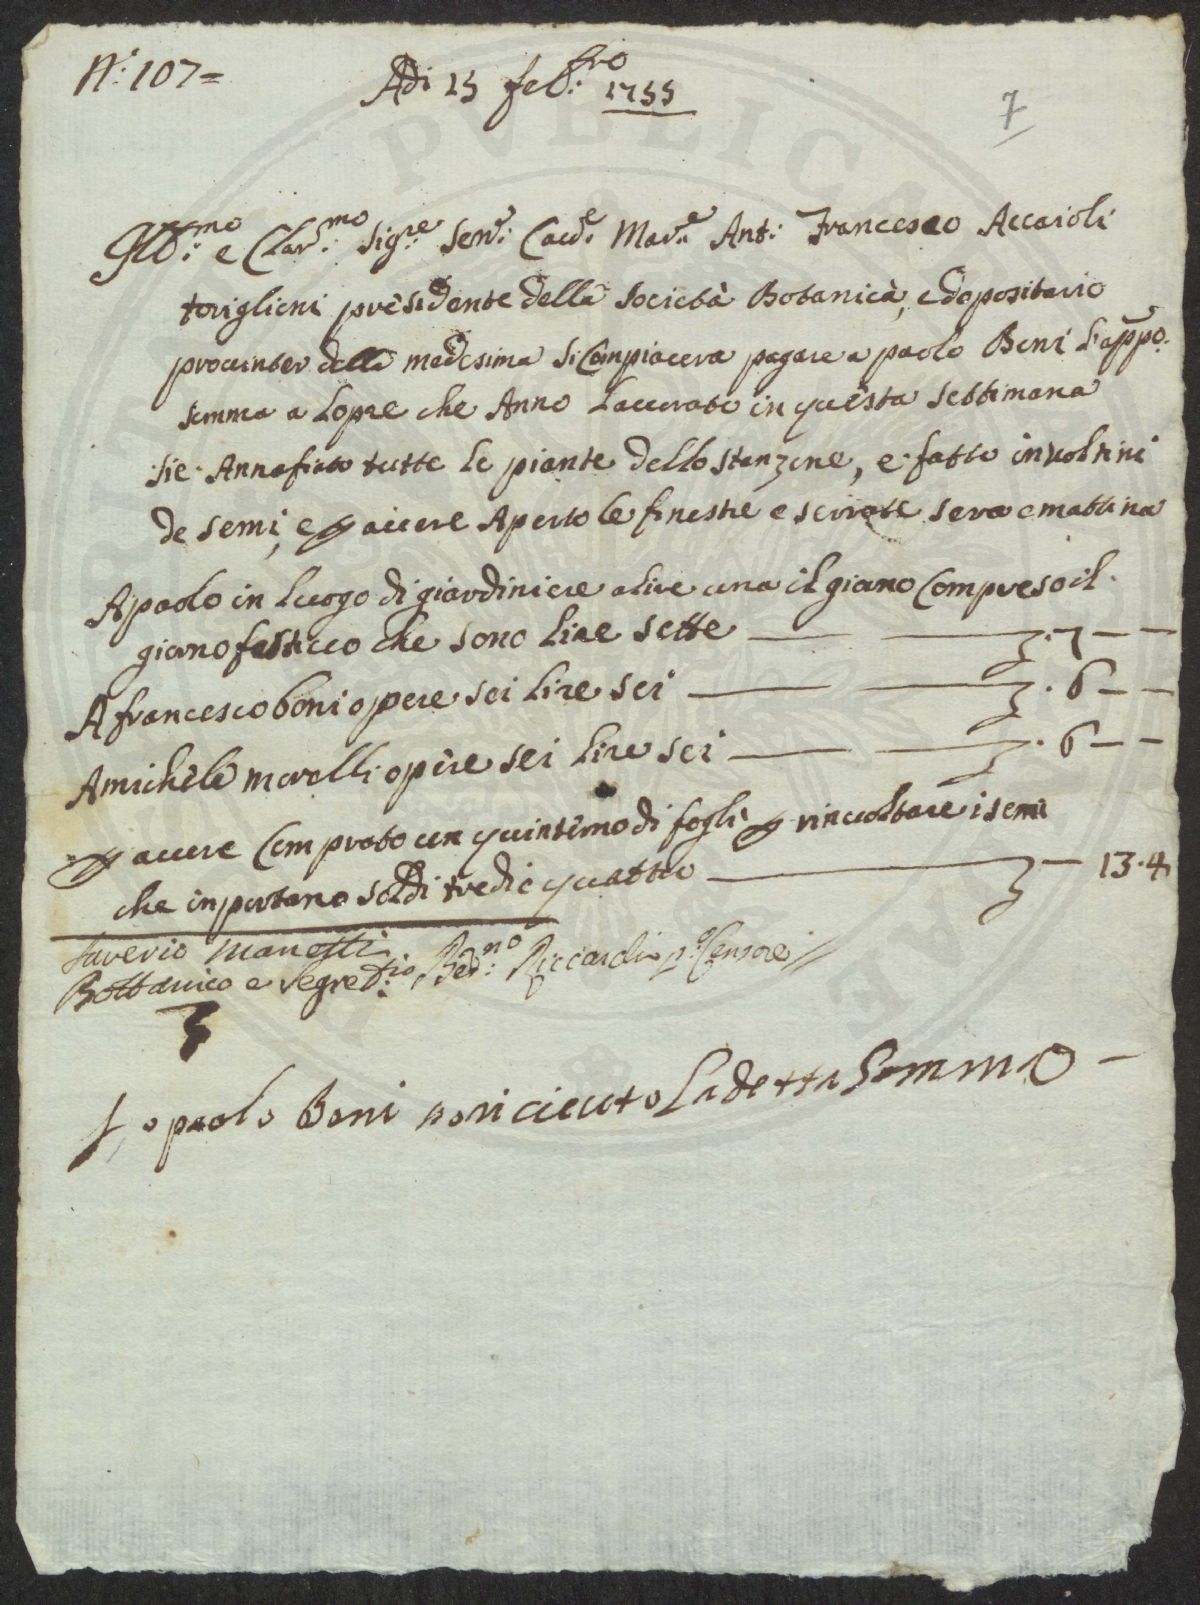 N.° 107=
Adi 15 feb:ro 1755
7
Ill:mo e Clar:mo Sig:re Sen:e Cav:e Mar:e Ant: Francesco Accaioli
toriglioni presidente della Società Botanica, e depositario
prointer della medesima si Compiacera pagare a paolo Boni l'appo:
somma a lopre che Anno lavorato in questa settimana
sie Annafiato tutte le piante dello stanzone, e fatto involtini
de semi, e p avere Aperto le finestre e serrate sera e mattina
A paolo in luogo di giardiniere a lire una il giorno Compreso il
giorno festivo che sono lire sette — 7 —
A francesco boni opere sei lire sei — 6 —
A michele morelli opere sei lire sei — 6 —
p avere Comprato un quinterno di fogli p rinvoltare i semi
che inportano soldi tredi e quattro — 13.4
Saverio Manetti
Bottanico e Segret:rio Bern:no Riccardi p:o Censore
Io paolo Boni o ricieuto La detta Somma —